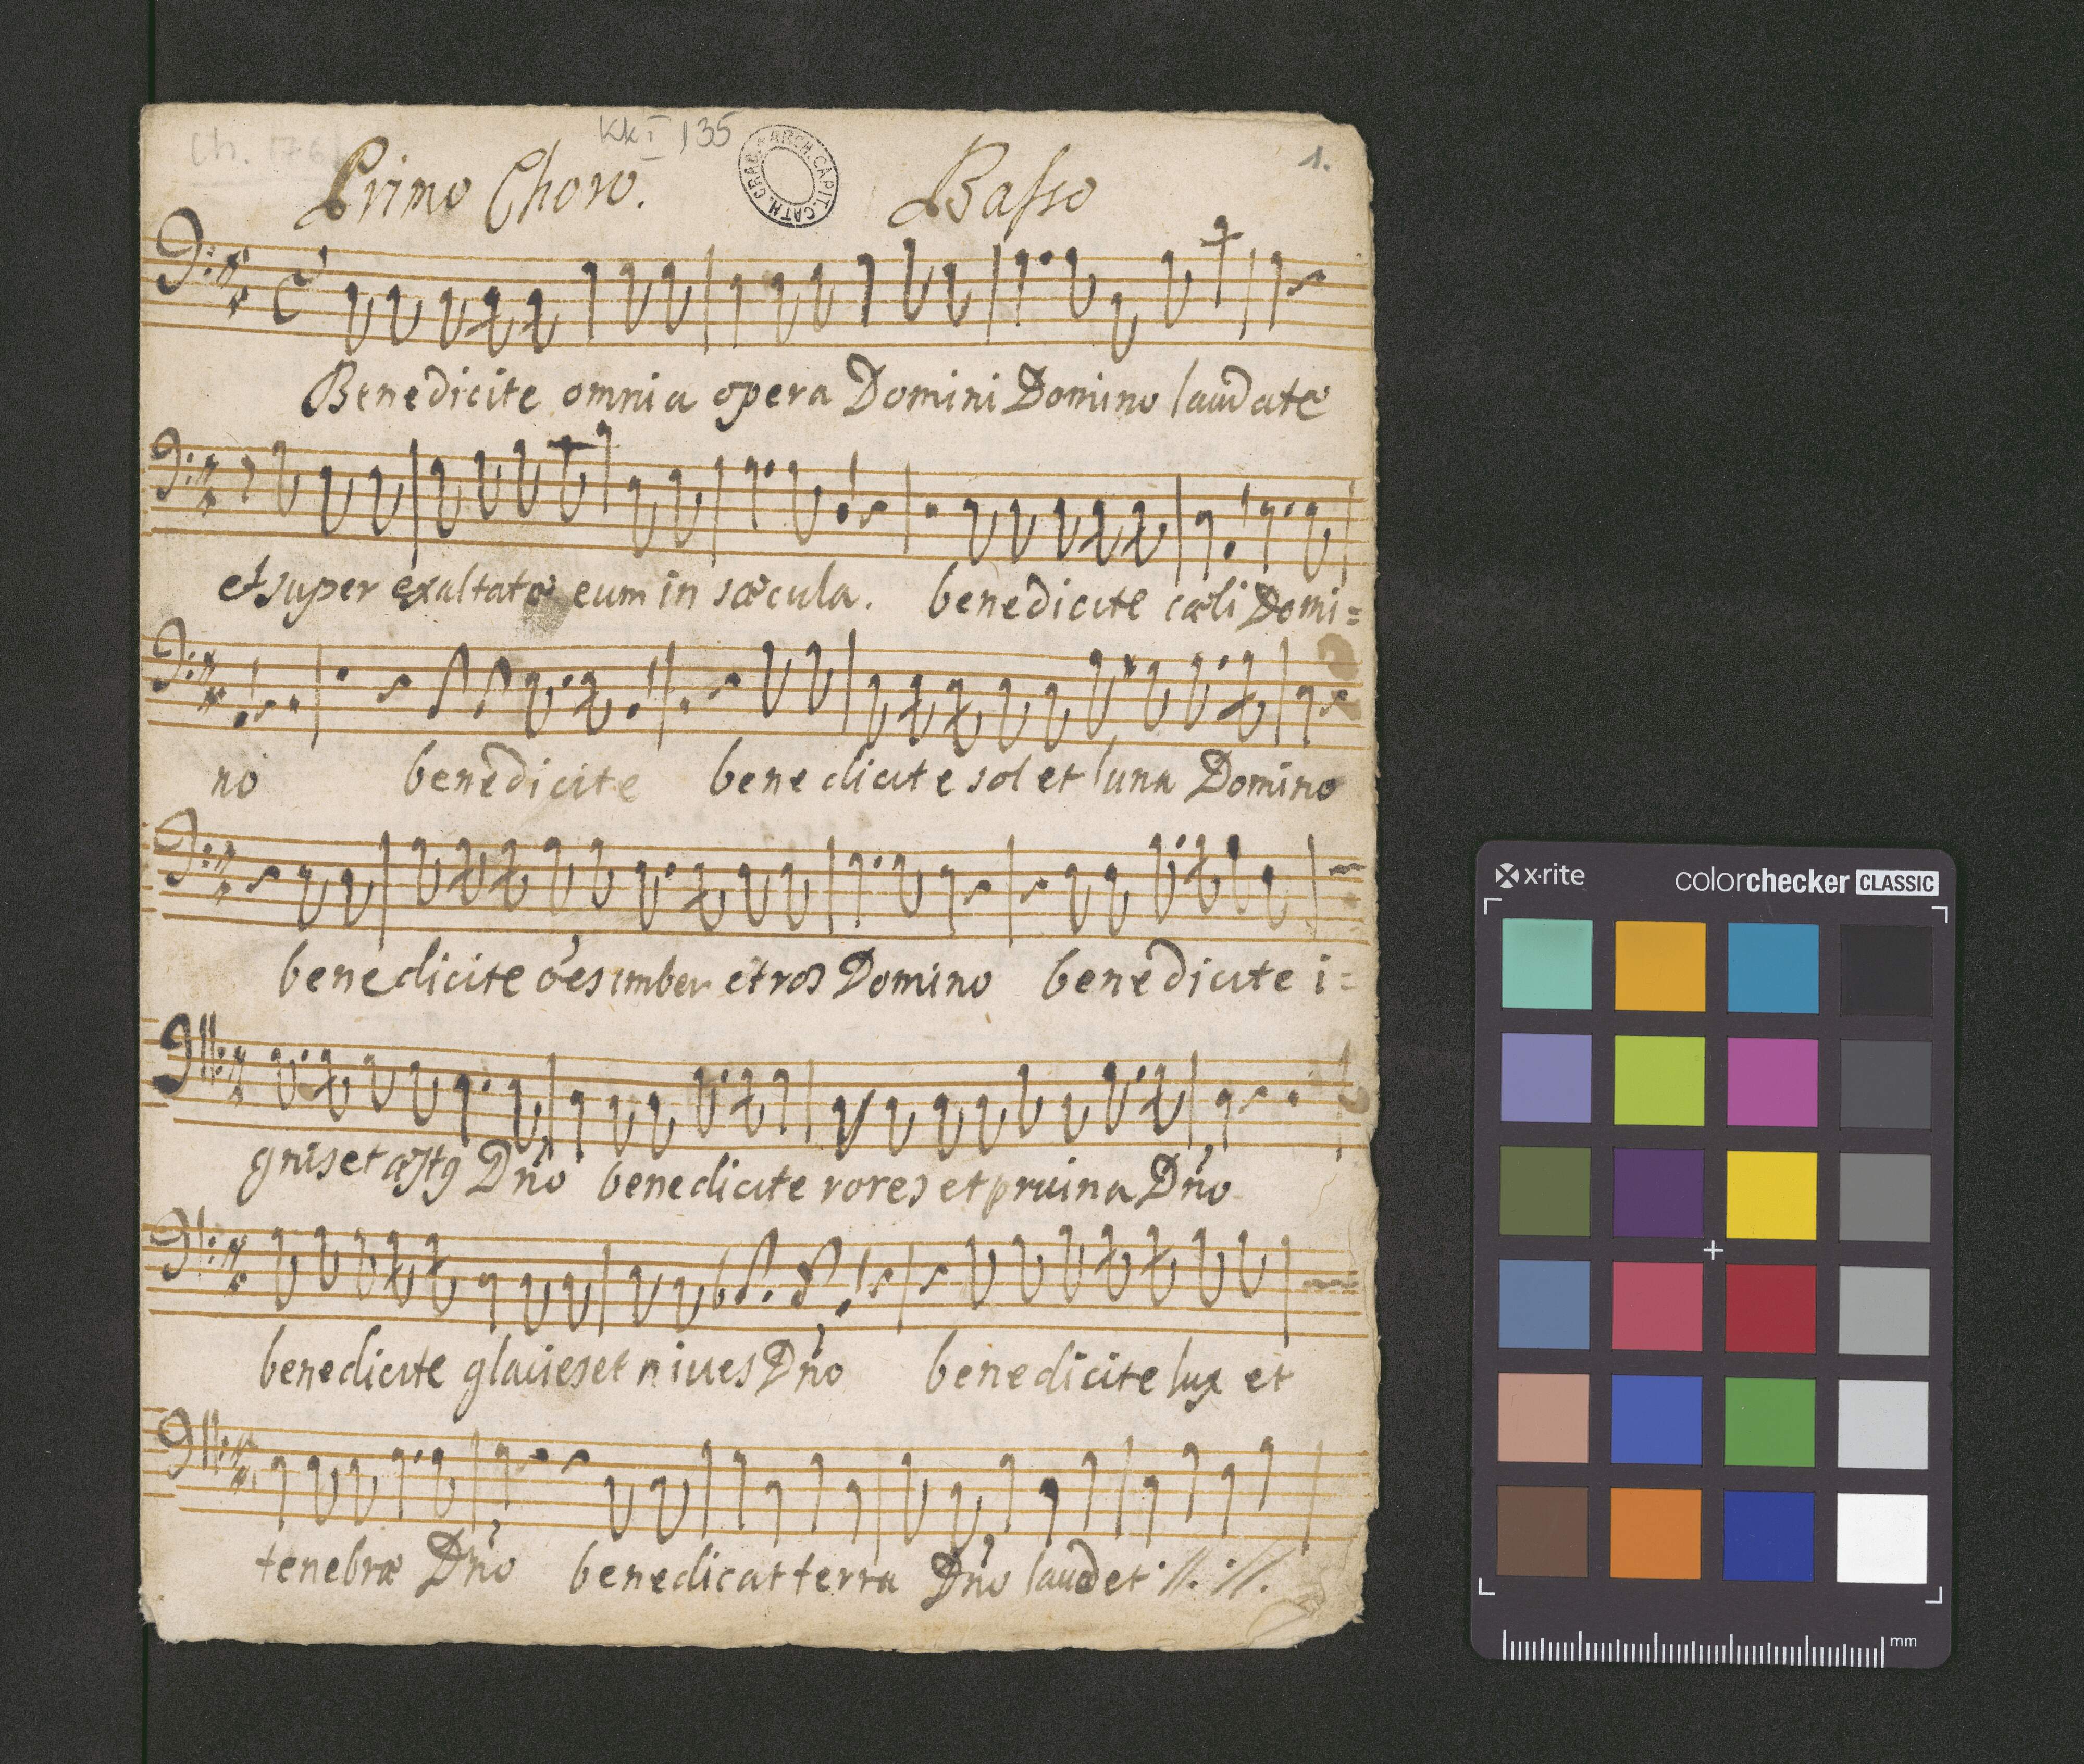 Ch. 176
KkI 135
1.
Primo Choro. Basso
ARCH. CAPIT. CATH. CRAC.
Benedicite omnia opera Domini Domino laudate
et super exaltate eum in sæcula. benedicite cæli Domi=
no benedicite benedicite sol et luna Domino
benedicite oe͂s imber et ros Domino benedicite i=
gnis et æstꝰ Dn͂o benedicite rores et pruina Dn͂o
benedicite glacies et niues Dn͂o benedicite lux et
tenebræ Dn͂o benedicat terra Dn͂o laudet ·//. ·//.
x·rite colorchecker CLASSIC
mm